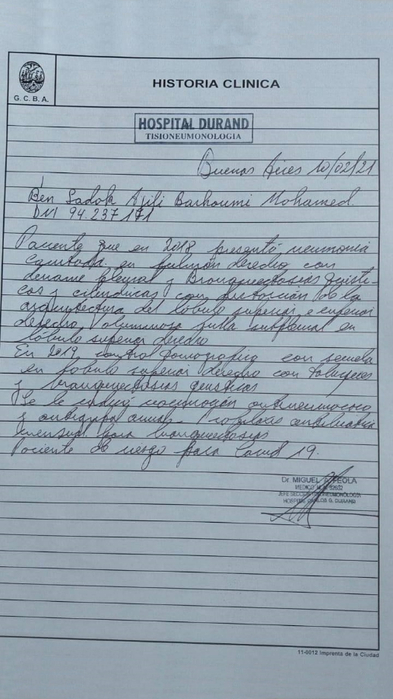 G.C.B.A.
HISTORIA CLINICA
HOSPITAL DURAND
TISIONEUMONOLOGIA
Buenos Aires 10/02/21
Ben Sadok Barhoumi Mohamed
DNI 94.237.171
Paciente que en 2018 presentó neumonia
en pulmón derecho con
derrame pleural y Bronquiectasias quisti-
cas y cilindricas con distorsión de la
arquitectura del lobulo superior e inferior
derecho. Voluminosa bulla subpleural en
lóbulo superior derecho
En 2019 control tomografico con secuela
en lobulo superior derecho con
y bronquiectasias
Se le indicó vacunación antineumococo
y antigripal anual.
mensual para bronquiectasias
Paciente de riesgo para Covid 19.
Dr. MIGUEL
HOSPITAL CARLOS G. DURAND
11-0012 Imprenta de la Ciudad